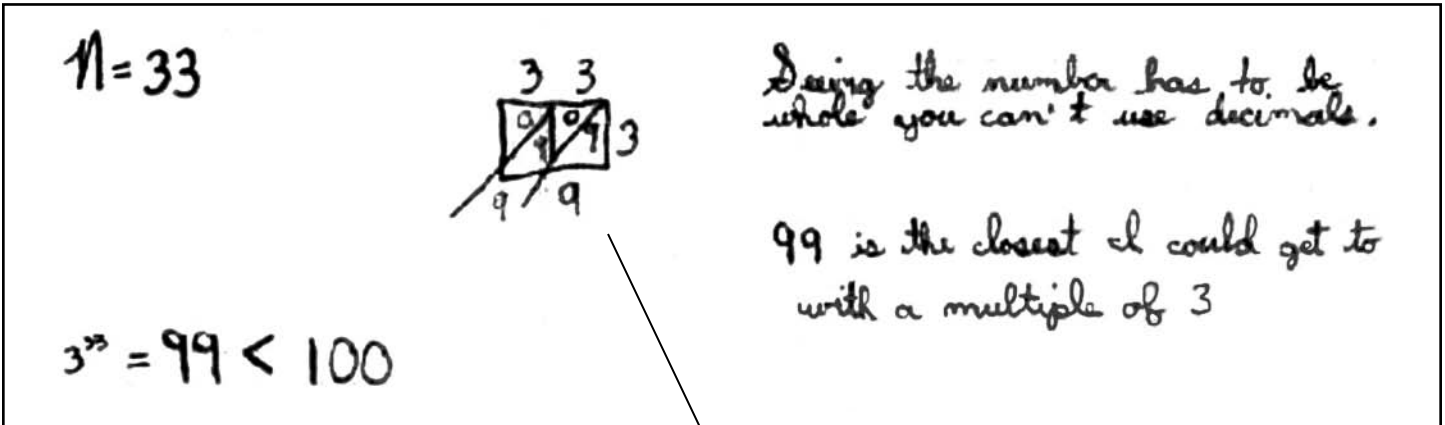 n = 33
3 3
0 9 0 9 3
9 9
3³³ = 99 < 100
Seeing the number has to be
whole you can't use decimals.
99 is the closest I could get to
with a multiple of 3